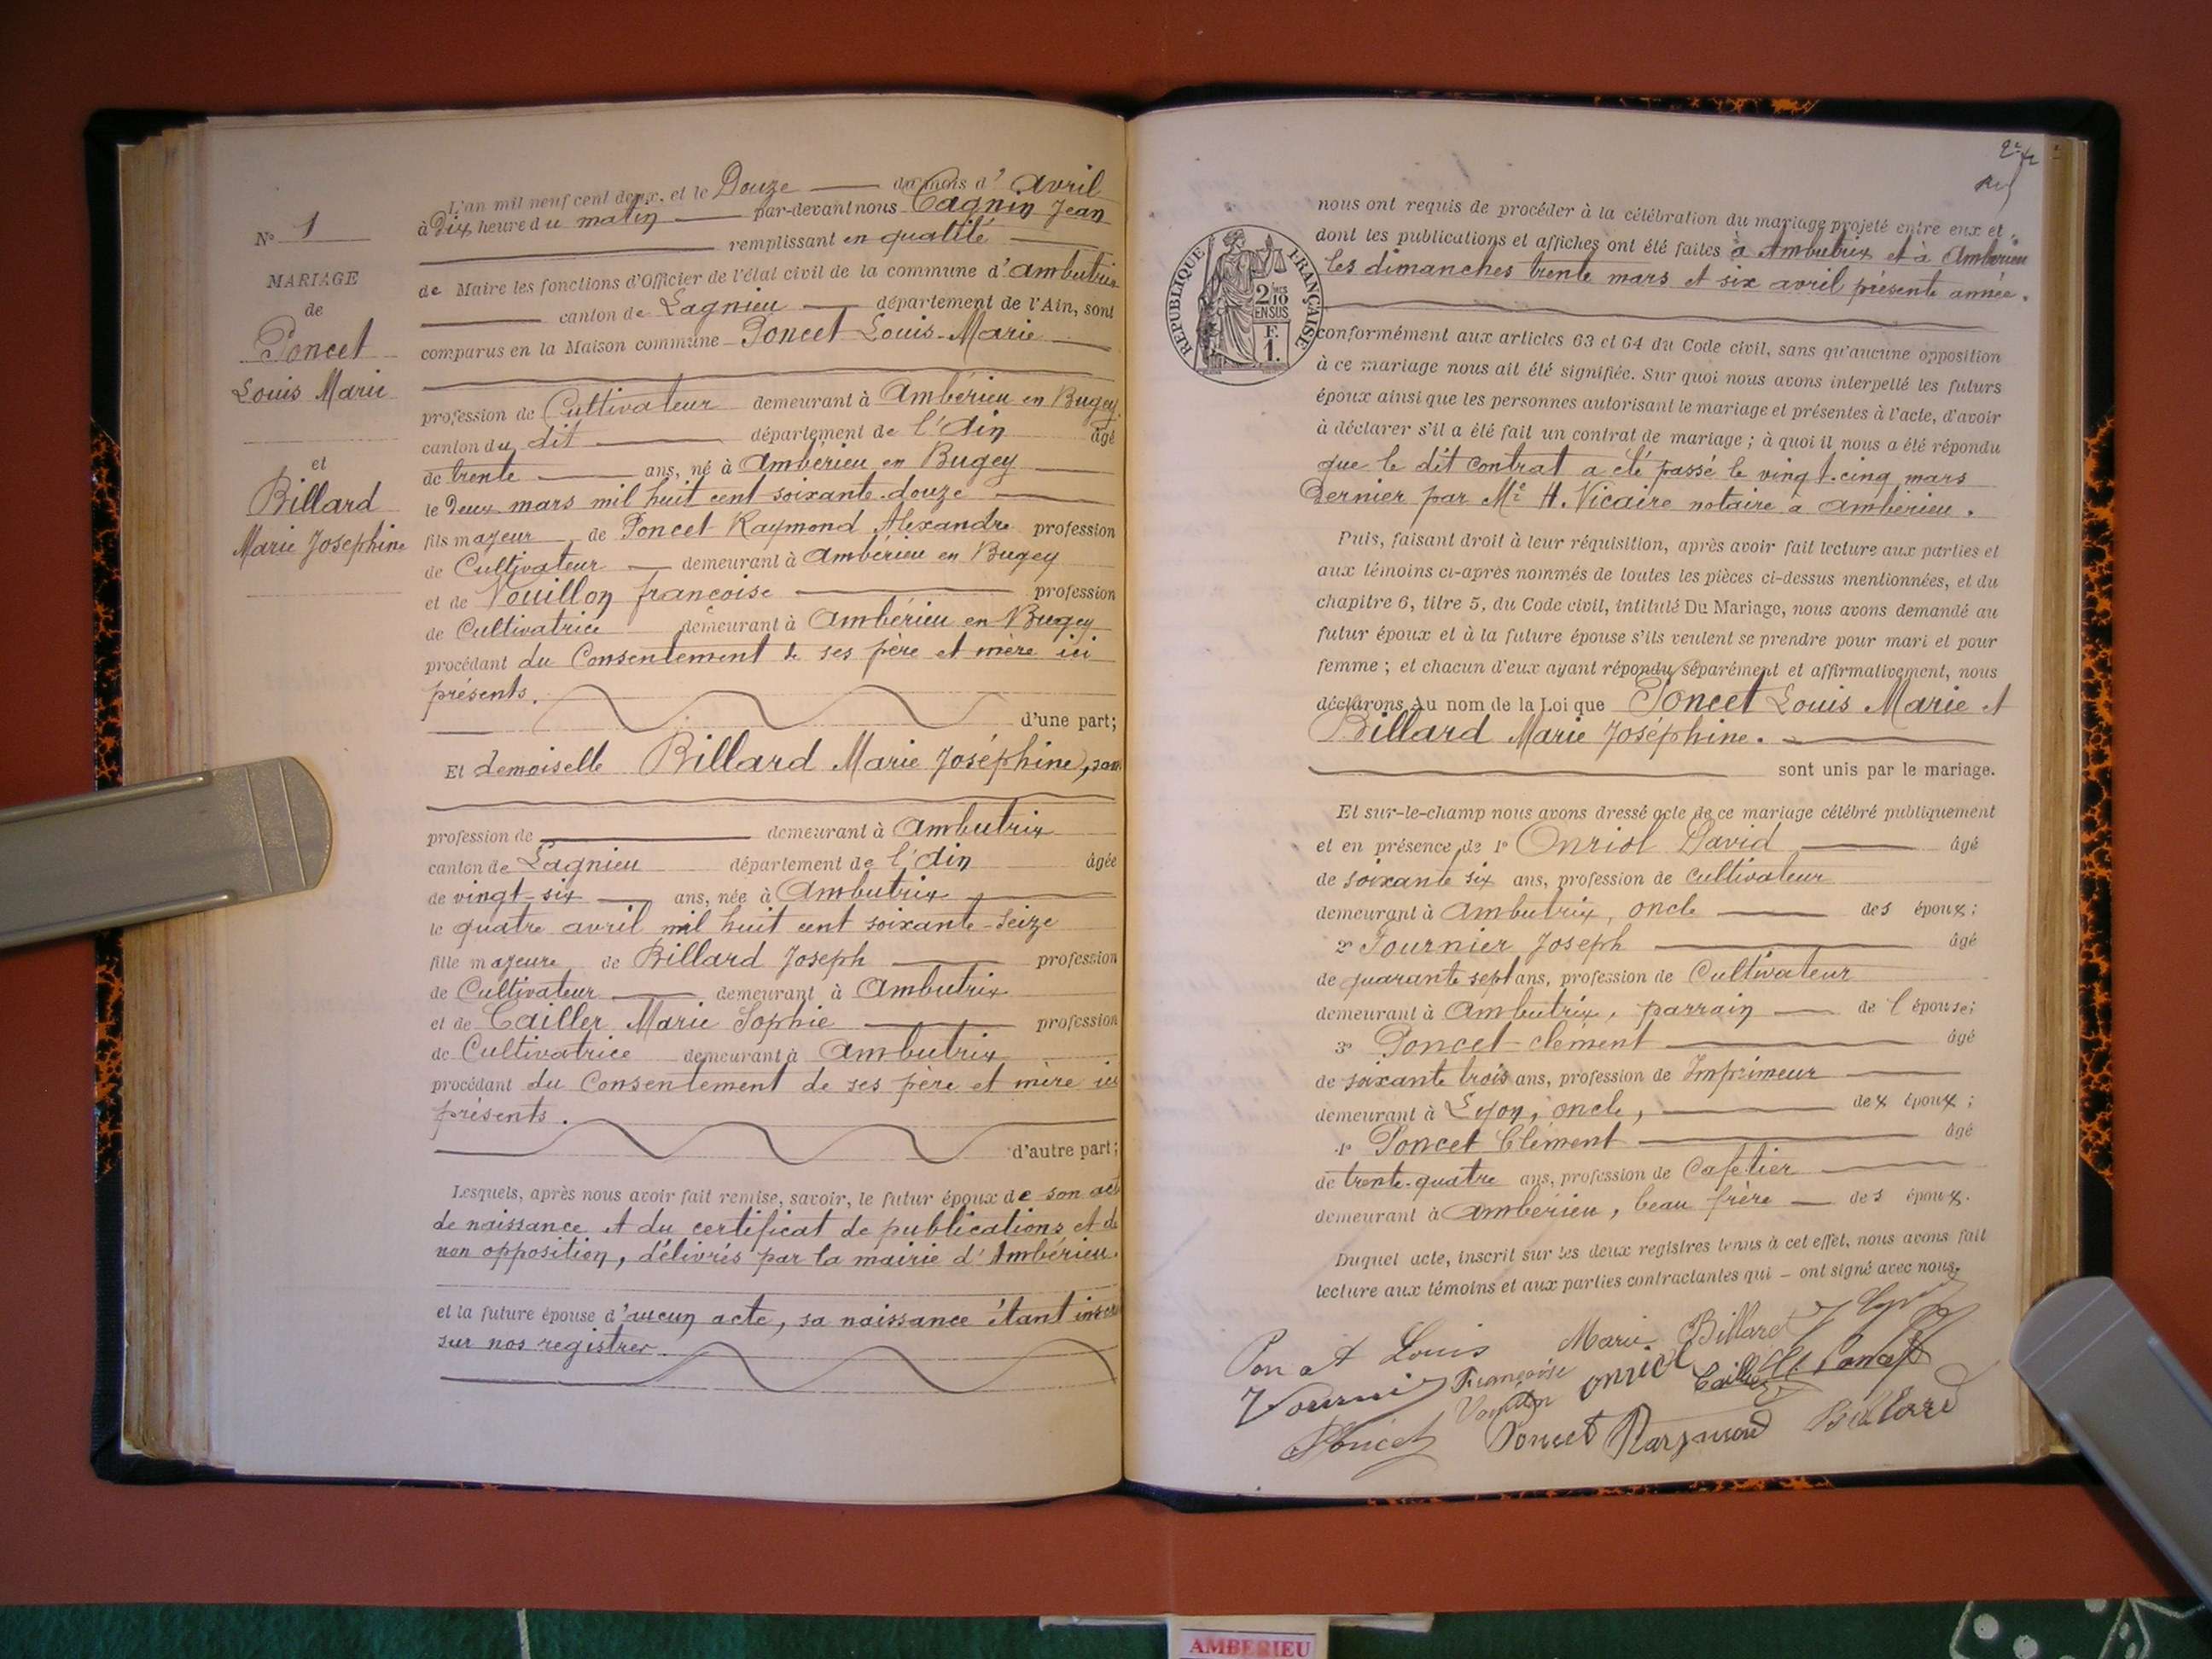 N° 1
MARIAGE
de
Poncet
Louis Marie
et
Billard
Marie Josephine
L'an mil neuf cent deux, et le Douze du mois d' Avril
à Dix heure du matin par-devant nous Cagnin Jean
remplissant en qualité
de Maire les fonctions d'Officier de l'état civil de la commune d'Ambutrix
canton de Lagnieu département de l'Ain, sont
comparus en la Maison commune Poncet Louis-Marie
profession de Cultivateur demeurant à Ambérieu en Bugey
canton du dit département de l'Ain âgé
de trente ans, né à Ambérieu en Bugey
le Deux mars mil huit cent soixante-douze
fils majeur de Poncet Raymond Alexandre profession
de Cultivateur demeurant à Ambérieu en Bugey
et de Vouillon françoise profession
de Cultivatrice demeurant à Ambérieu en Bugey
procédant du Consentement de ses père et mère ici
présents.
d'une part;
Et demoiselle Billard Marie Joséphine, san
profession de demeurant à Ambutrix
canton de Lagnieu département de l'Ain âgée
de vingt-six ans, née à Ambutrix
le quatre avril mil huit cent soixante-seize
fille majeure de Billard Joseph profession
de Cultivateur demeurant à Ambutrix
et de Cailler Marie Sophie profession
de Cultivatrice demeurant à Ambutrix
procédant du Consentement de ses père et mère ici
présents.
d'autre part;
Lesquels, après nous avoir fait remise, savoir, le futur époux de son acte
de naissance et du certificat de publications et de
non opposition, délivrés par la mairie d'Ambérieu.
et la future épouse d'aucun acte, sa naissance étant inscr
sur nos registres.
REPUBLIQUE FRANÇAISE
2/10
EN SUS
F.
1.
nous ont requis de procéder à la célébration du mariage projeté entre eux et
dont les publications et affiches ont été faites à Ambutrix et à Ambérieu
les dimanches trente mars et six avril présente année.
conformément aux articles 63 et 64 du Code civil, sans qu'aucune opposition
à ce mariage nous ait été signifiée. Sur quoi nous avons interpellé les futurs
époux ainsi que les personnes autorisant le mariage et présentes à l'acte, d'avoir
à déclarer s'il a été fait un contrat de mariage ; à quoi il nous a été répondu
que le dit contrat a été passé le vingt-cinq mars
Dernier par Me H. Vicaire notaire à Ambérieu.
Puis, faisant droit à leur réquisition, après avoir fait lecture aux parties et
aux témoins ci-après nommés de toutes les pièces ci-dessus mentionnées, et du
chapitre 6, titre 5, du Code civil, intitulé Du Mariage, nous avons demandé au
futur époux et à la future épouse s'ils veulent se prendre pour mari et pour
femme ; et chacun d'eux ayant répondu séparément et affirmativement, nous
déclarons Au nom de la Loi que Poncet Louis Marie et
Billard Marie Joséphine.
sont unis par le mariage.
Et sur-le-champ nous avons dressé acte de ce mariage célébré publiquement
et en présence de 1° Onriol David âgé
de soixante six ans, profession de Cultivateur
demeurant à Ambutrix, oncle des époux;
2° Fournier Joseph âgé
de quarante sept ans, profession de Cultivateur
demeurant à Ambutrix, parrain de l'épouse;
3° Poncet clément âgé
de soixante trois ans, profession de Imprimeur
demeurant à Lyon, oncle, dex époux;
4° Poncet Clément âgé
de trente-quatre ans, profession de Cafetier
demeurant à Ambérieu, beau frère des époux.
Duquel acte, inscrit sur les deux registres tenus à cet effet, nous avons fait
lecture aux témoins et aux parties contractantes qui - ont signé avec nous.
Poncet Louis Marie Billard
Françoise Onriol Cailler Cl. Poncet
Poncet Poncet Raymond Billard
AMBERIEU